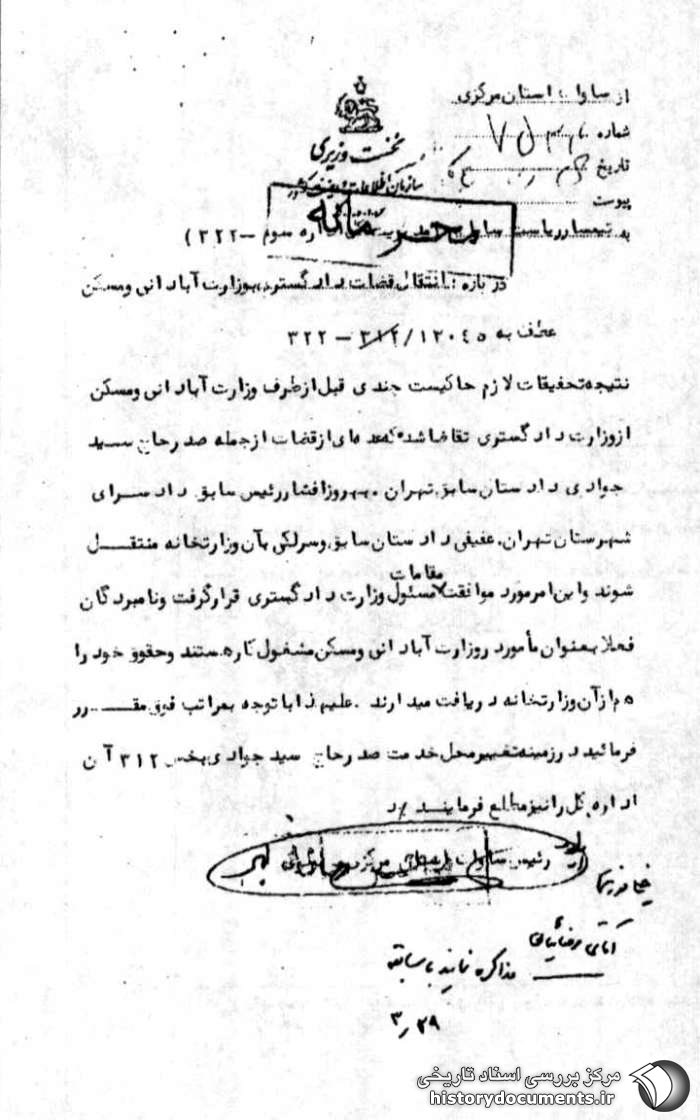 از ساواک استان مرکزی
شماره
تاریخ
پیوست
نخست وزیری
سازمان اطلاعات و امنیت کشور
به تیمسار ریاست ساواک سوم - ۳۲۲)
درباره: انتقال قضات دادگستری بوزارت آبادانی ومسکن
عطف به ۱۲۰۴۵/ ۳۱۲ - ۳۲۲
نتیجه تحقیقات لازم حاکیست چندی قبل ازطرف وزارت آبادانی ومسکن
ازوزارت دادگستری تقاضا شده که عده ای ازقضات ازجمله صدر حاج سید
جوادی دادستان سابق تهران . بهروزافشاررئیس سابق دادسرای
شهرستان تهران . عفیفی دادستان سابق وسرلکی بآن وزارتخانه منتقل
شوند واین امرمورد موافقت مقامات مسئول وزارت دادگستری قرارگرفت ونامبردگان
فعلا بعنوان مأمور دروزارت آبادانی ومسکن مشغول کارهستند وحقوق خود را
هم ازآن وزارتخانه دریافت میدارند . علیهذا باتوجه بمراتب فوق مقرر
فرمائید درزمینه تغییرمحل خدمت صدرحاج سید جوادی بخش ۳۱۲ آن
اداره کل رانیزمطلع فرمایند
رئیس ساواک استان مرکزی
آقای رضائیان
مذاکره نمایند باسابقه
۳٫۲۹
مرکز بررسی اسناد تاریخی
historydocuments.ir